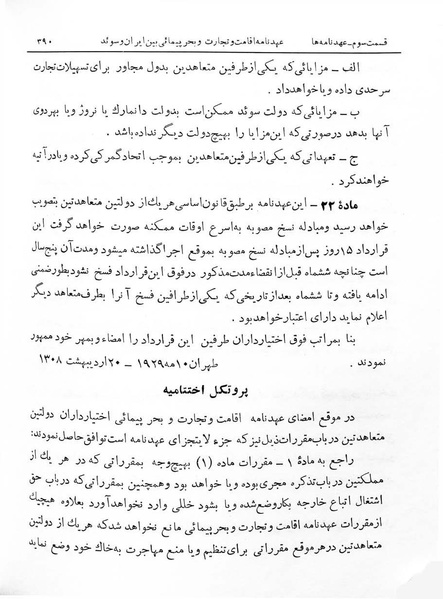 قسمت سوم_عهدنامه‌ها عهدنامه اقامت و تجارت و بحر پیمائی بین ایران و سوئد ۳۹۰
الف _ مزایائی که یکی از طرفین متعاهدین بدول مجاور برای تسهیلات تجارت
سرحدی داده و یا خواهد داد.
ب _ مزایائی که دولت سوئد ممکن است بدولت دانمارک یا نروژ و یا بهر دوی
آنها بدهد در صورتی که این مزایا را بهیچ دولت دیگر نداده باشد .
ج _ تعهداتی که یکی از طرفین متعاهدین بموجب اتحاد گمرکی کرده و یا در آتیه
خواهند کرد .
مادهٔ ۲۲ _ این عهدنامه بر طبق قانون اساسی هر یک از دولتین متعاهدتین بتصویب
خواهد رسید و مبادله نسخ مصوبه به اسرع اوقات ممکنه صورت خواهد گرفت این
قرارداد ۱۵ روز پس از مبادله نسخ مصوبه بموقع اجرا گذاشته میشود و مدت آن پنج سال
است چنانچه ششماه قبل از انقضاء مدت مذکور در فوق این قرارداد فسخ نشود بطور ضمنی
ادامه یافته و تا ششماه بعد از تاریخی که یکی از طرفین فسخ آنرا بطرف متعاهد دیگر
اعلام نماید دارای اعتبار خواهد بود .
بنا بمراتب فوق اختیارداران طرفین این قرارداد را امضاء و بمهر خود ممهور
نمودند . طهران ۱۰ مه ۱۹۲۹ _ ۲۰ اردیبهشت ۱۳۰۸
پروتکل اختتامیه
در موقع امضای عهدنامه اقامت و تجارت و بحر پیمائی اختیارداران دولتین
متعاهدتین در باب مقررات ذیل نیز که جزء لایتجزای عهدنامه است توافق حاصل نمودند:
راجع به مادهٔ ۱ _ مقررات ماده (۱) بهیچوجه بمقرراتی که در هر یک از
مملکتین در باب تذکره مجری بوده و یا خواهد بود و همچنین بمقرراتی که در باب حق
اشتغال اتباع خارجه بکار وضع شده و یا بشود خللی وارد نخواهد آورد بعلاوه هیچیک
از مقررات عهدنامه اقامت و تجارت و بحر پیمائی مانع نخواهد شد که هر یک از دولتین
متعاهدتین در هر موقع مقرراتی برای تنظیم و یا منع مهاجرت به خاک خود وضع نماید